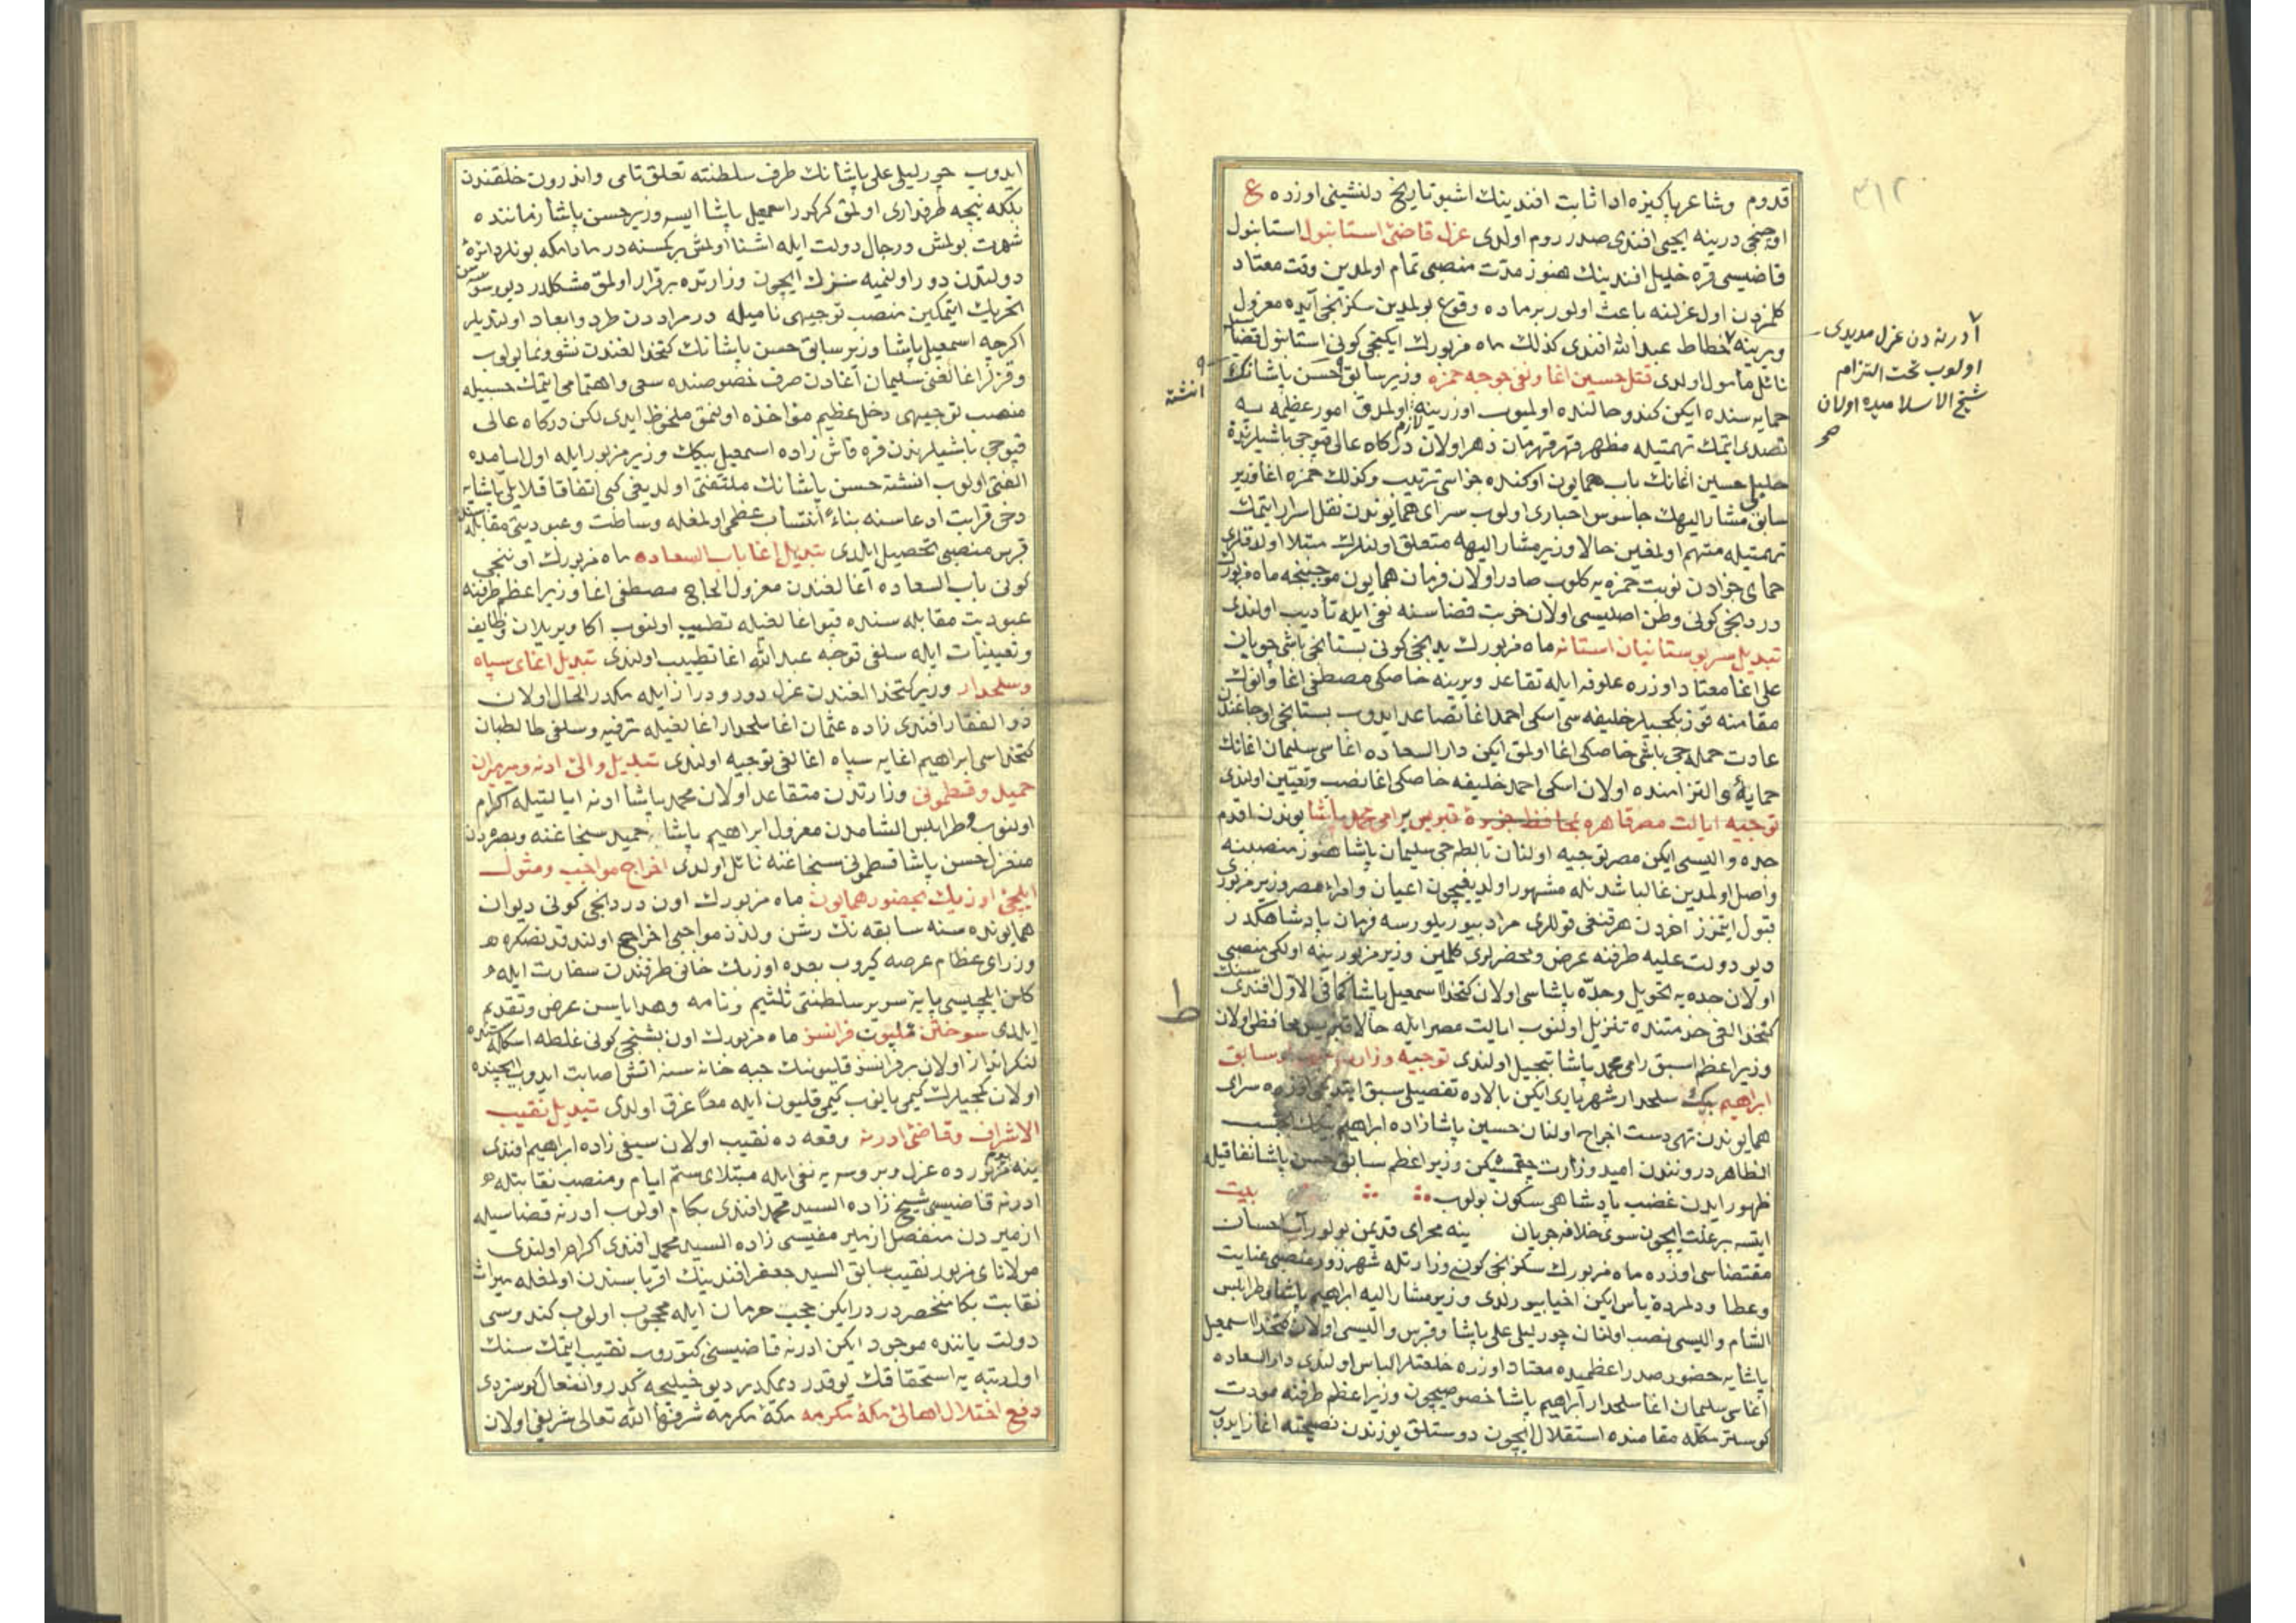 قدوم وشاعر پاکیزه ادا ثابت افندینك اشبو تاریخ دلنشینی اوزره ع
اوچنجی درینه یحیی افندی صدر روم اولدی عزل قاضئ استانبول استانبول
قاضیسی قره خلیل افندینك هنوز مدت منصبی تمام اولمدین وقت معتاد
کلمزدن اول عزلنه باعث اولور بر ماده وقوع بولمدین سکزنجی آیده معزول
ویرینه خطاط عبد الله افندی کذلك ماه مزبورك ایکنجی کونی استانبول قضاسنه
نائل مأمول اولدی قتل حسین اغا ونفی خوجه حمزه وزیر سابق حسن پاشانك
حمایه سنده ایکن کندو حالنده اولمیوب اوزرینه لازم اولمدق امور عظیمه یه
تصدی ایتمك تهمتیله مظهر قهر قهرمان دهر اولان درکاه عالی قپوجی باشیلرندن
خلیل حسین اغانك باب همایون اوکنده جزاسی ترتیب وکذلك حمزه اغا وزیر
سابق مشار الیهك جاسوس اخباری اولوب سرای همایوندن نقل اسرار ایتمك
تهمتیله متهم اولمغین حالا وزیر مشار الیهه متعلق اولنلرك مبتلا اولدقلری
حمای جزادن نوبت حمزه یه کلوب صادر اولان فرمان همایون موجبنجه ماه مزبورك
دردنجی کونی وطن اصلیسی اولان خربت قضاسنه نفی ایله تأدیب اولندی
تبدیل سر بوستانیان استانه ماه مزبورك یدنجی کونی بستانجی باشی چوبان
علی اغا معتاد اوزره علوفه ایله تقاعد ویرینه خاصکی مصطفی اغا وانوك
مقامنه قوز بکجیلر خلیفه سی اسکی احمد اغا تصاعد ایدوب بستانجی اوجاغندن
عادت حمله جی باشی خاصکی اغا اولمق ایکن دار السعاده اغاسی سلیمان اغانك
حمایه ٔ والتزامنده اولان اسکی احمد خلیفه خاصکی اغا نصب وتعیین اولندی
توجیه ایالت مصر قاهره بمحافظ جزیرۀ قبریس رامی محمد پاشا بوندن اقدم
جده والیسی ایکن مصر توجیه اولنان بالطه جی سلیمان پاشا هنوز منصبنه
واصل اولمدین غالبا شدتله مشهور اولدیغیچون اعیان وامراء مصر وزیر مزبوری
قبول ایتمزز اخردن هر قنغی قوللری مراد بیوریلورسه فرمان پادشاهکدر
دیو دولت علیه طرفنه عرض ومحضرلری کلمین وزیر مزبور ینه اولکی منصبی
اولان جده یه تحویل وجده پاشاسی اولان کتخدا اسمعیل پاشا کما فی الاول افندیسنك
کتخدالغی خدمتنده تنزیل اولنوب ایالت مصر ایله حالا قبریس محافظی اولان
وزیر اعظم اسبق رامی محمد پاشا تبجیل اولندی توجیه وزارت سابق
ابراهیم بیك سلحدار شهریاری ایکن بالاده تفصیلی سبق ایتدیکی اوزره سرای
همایوندن تهی دست اخراج اولنان حسین پاشا زاده ابراهیم بیك بحسب
الظاهر دروندن امید وزارت چقمشیکن وزیر اعظم سابق حسن پاشا نفاقیله
ظهور ایدن غضب پادشاهی سکون بولوب بیت
ایتسه بر علت ایچون سوی خلافه جریان ینه مجرای قدیمن بولور آب احسان
مقتضاسی اوزره ماه مزبورك سکزنجی کونی وزارتله شهرزور منصبی عنایت
وعطا ودلمردۀ یأس ایکن احیا بیورلدی وزیر مشار الیه ابراهیم پاشا وطرابلس
الشام والیسی نصب اولنان چورلیلی علی پاشا وقبرس والیسی اولان کتخدا اسمعیل
پاشایه حضور صدر اعظمیده معتاد اوزره خلعتلر الباس اولندی دار السعاده
آغاسی سلیمان اغا سلحدار ابراهیم پاشا خصوصیچون وزیر اعظم طرفنه مودت
کوسترمکله مقامنده استقلال ایچون دوستلق یوزندن نصیحته اغاز ایدوب
ادرنه دن عزل مدیدی
اولوب تحت التزام
شیخ الاسلامیده اولان
صح
انشته
ط
٣١٢
ایدوب چورلیلی علی پاشانك طرف سلطنته تعلق تامی واندرون خلقندن
بلکه نیجه طرفداری اولمق کرکدر اسمعیل پاشا ایسه وزیر حسن پاشا زماننده
شهرت بولمش ورجال دولت ایله اشنا اولمش بر کمسنه در مادامکه بونلر دائرۀ
دولتدن دور اولنمیه سزك ایچون وزارتده برقرار اولمق مشکلدر دیو سوسن
تحریك ایتمکین منصب توجیهی نامیله درمراددن طرد وابعاد اولندیلر
اکرچه اسمعیل پاشا وزیر سابق حسن پاشانك کتخدالغندن نشو ونما بولوب
وقزلر اغالغنی سلیمان آغادن صرف خصوصنده سعی واهتمامی ایتمك حسبیله
منصب توجیهی دخل عظیم مؤاخذه اولنمق ملحوظ ایدی لکن درکاه عالی
قپوجی باشیلرندن قره قاش زاده اسمعیل بیك وزیر مزبور ایله اول ایامده
الفتی اولوب انشته حسن پاشانك ملتفتی اولدیغی کبی اتفاقا قلایلی پاشایه
دخی قرابت ادعاسنه بناءً انتساب عظمی اولمغله وساطت وعبودیتی مقابله سنده
قبرس منصبی تحصیل ایلدی تبدیل اغا باب السعاده ماه مزبورك اوننجی
کونی باب السعاده اغالغندن معزول الحاج مصطفی اغا وزیر اعظم طرفنه
عبودیت مقابله سنده قپو اغالغیله تطییب اولنوب اکا ویریلان وظایف
وتعیینات ایله سلفی توجه عبد الله اغا تطییب اولندی تبدیل اغای سپاه
وسلحدار وزیر کتخدالغندن عزل دور ودراز ایله مکدر الحال اولان
ذو الفقار افندی زاده عثمان اغا سلحدار اغالغیله ترفیه وسلفی طالطبان
کتخداسی ابراهیم اغایه سپاه اغالغی توجیه اولندی تبدیل والئ ادنه ومیرمیران
حمید وقسطمونی وزارتدن متقاعد اولان محمد پاشا ادنه ایالتیله اکرام
اولنوب وطرابلس الشامدن معزول ابراهیم پاشا یه حمید سنجاغنه وبصره دن
منعزل حسن پاشا قسطمونی سنجاغنه نائل اولدی اخراج مواجب ومثول
ایلچئ اوزبك بحضور همایون ماه مزبورك اون دردنجی کونی دیوان
همایونده سنه سابقه نك رشن ولذذ مواجبی اخراج اولندقدنصکره
وزرای عظام عرضه کیروب بعده اوزبك خانی طرفندن سفارت ایله
کلن ایلچیسی پایۀ سریر سلطنتی تلثیم ونامه وهدایاسن عرض وتقدیم
ایلدی سوختن قلیون فرانسز ماه مزبورك اون بشنجی کونی غلطه اسکله سنده
لنکر انداز اولان بر فرانسز قلیوننك جبه خانه سنه اتش اصابت ایدوب ایچنده
اولان کمجیلرك کیمی یانوب کیمی قلیون ایله معاً غرق اولدی تبدیل نقیب
الاشراف وقاضئ ادرنه وقعه ده نقیب اولان سیفی زاده ابراهیم افندی
ینه یوم مزبورده عزل وبروسه یه نفی ایله مبتلای ستم ایام ومنصب نقابتله
ادرنه قاضیسی شیخ زاده السید محمد افندی بکام اولوب ادرنه قضاسیله
ازمیردن منفصل ازمیر مفتیسی زاده السید محمد افندی اکرام اولندی
مولانای مزبور نقیب سابق السید جعفر افندینك اقرباسندن اولمغله میراث
نقابت بکا منحصردر درایکن حجب حرمان ایله محجوب اولوب کندوسی
دولت یاننده موجود ایکن ادرنه قاضیسنی کتوروب نقیب ایتمك سنك
اول رتبه یه استحقاقك یوقدر دیمکدر دیو خیلیجه کدر وانفعال کوستردی
دفع اختلال اهالئ مکۀ مکرمه مکۀ مکرمه شرفها الله تعالی شریفی اولان